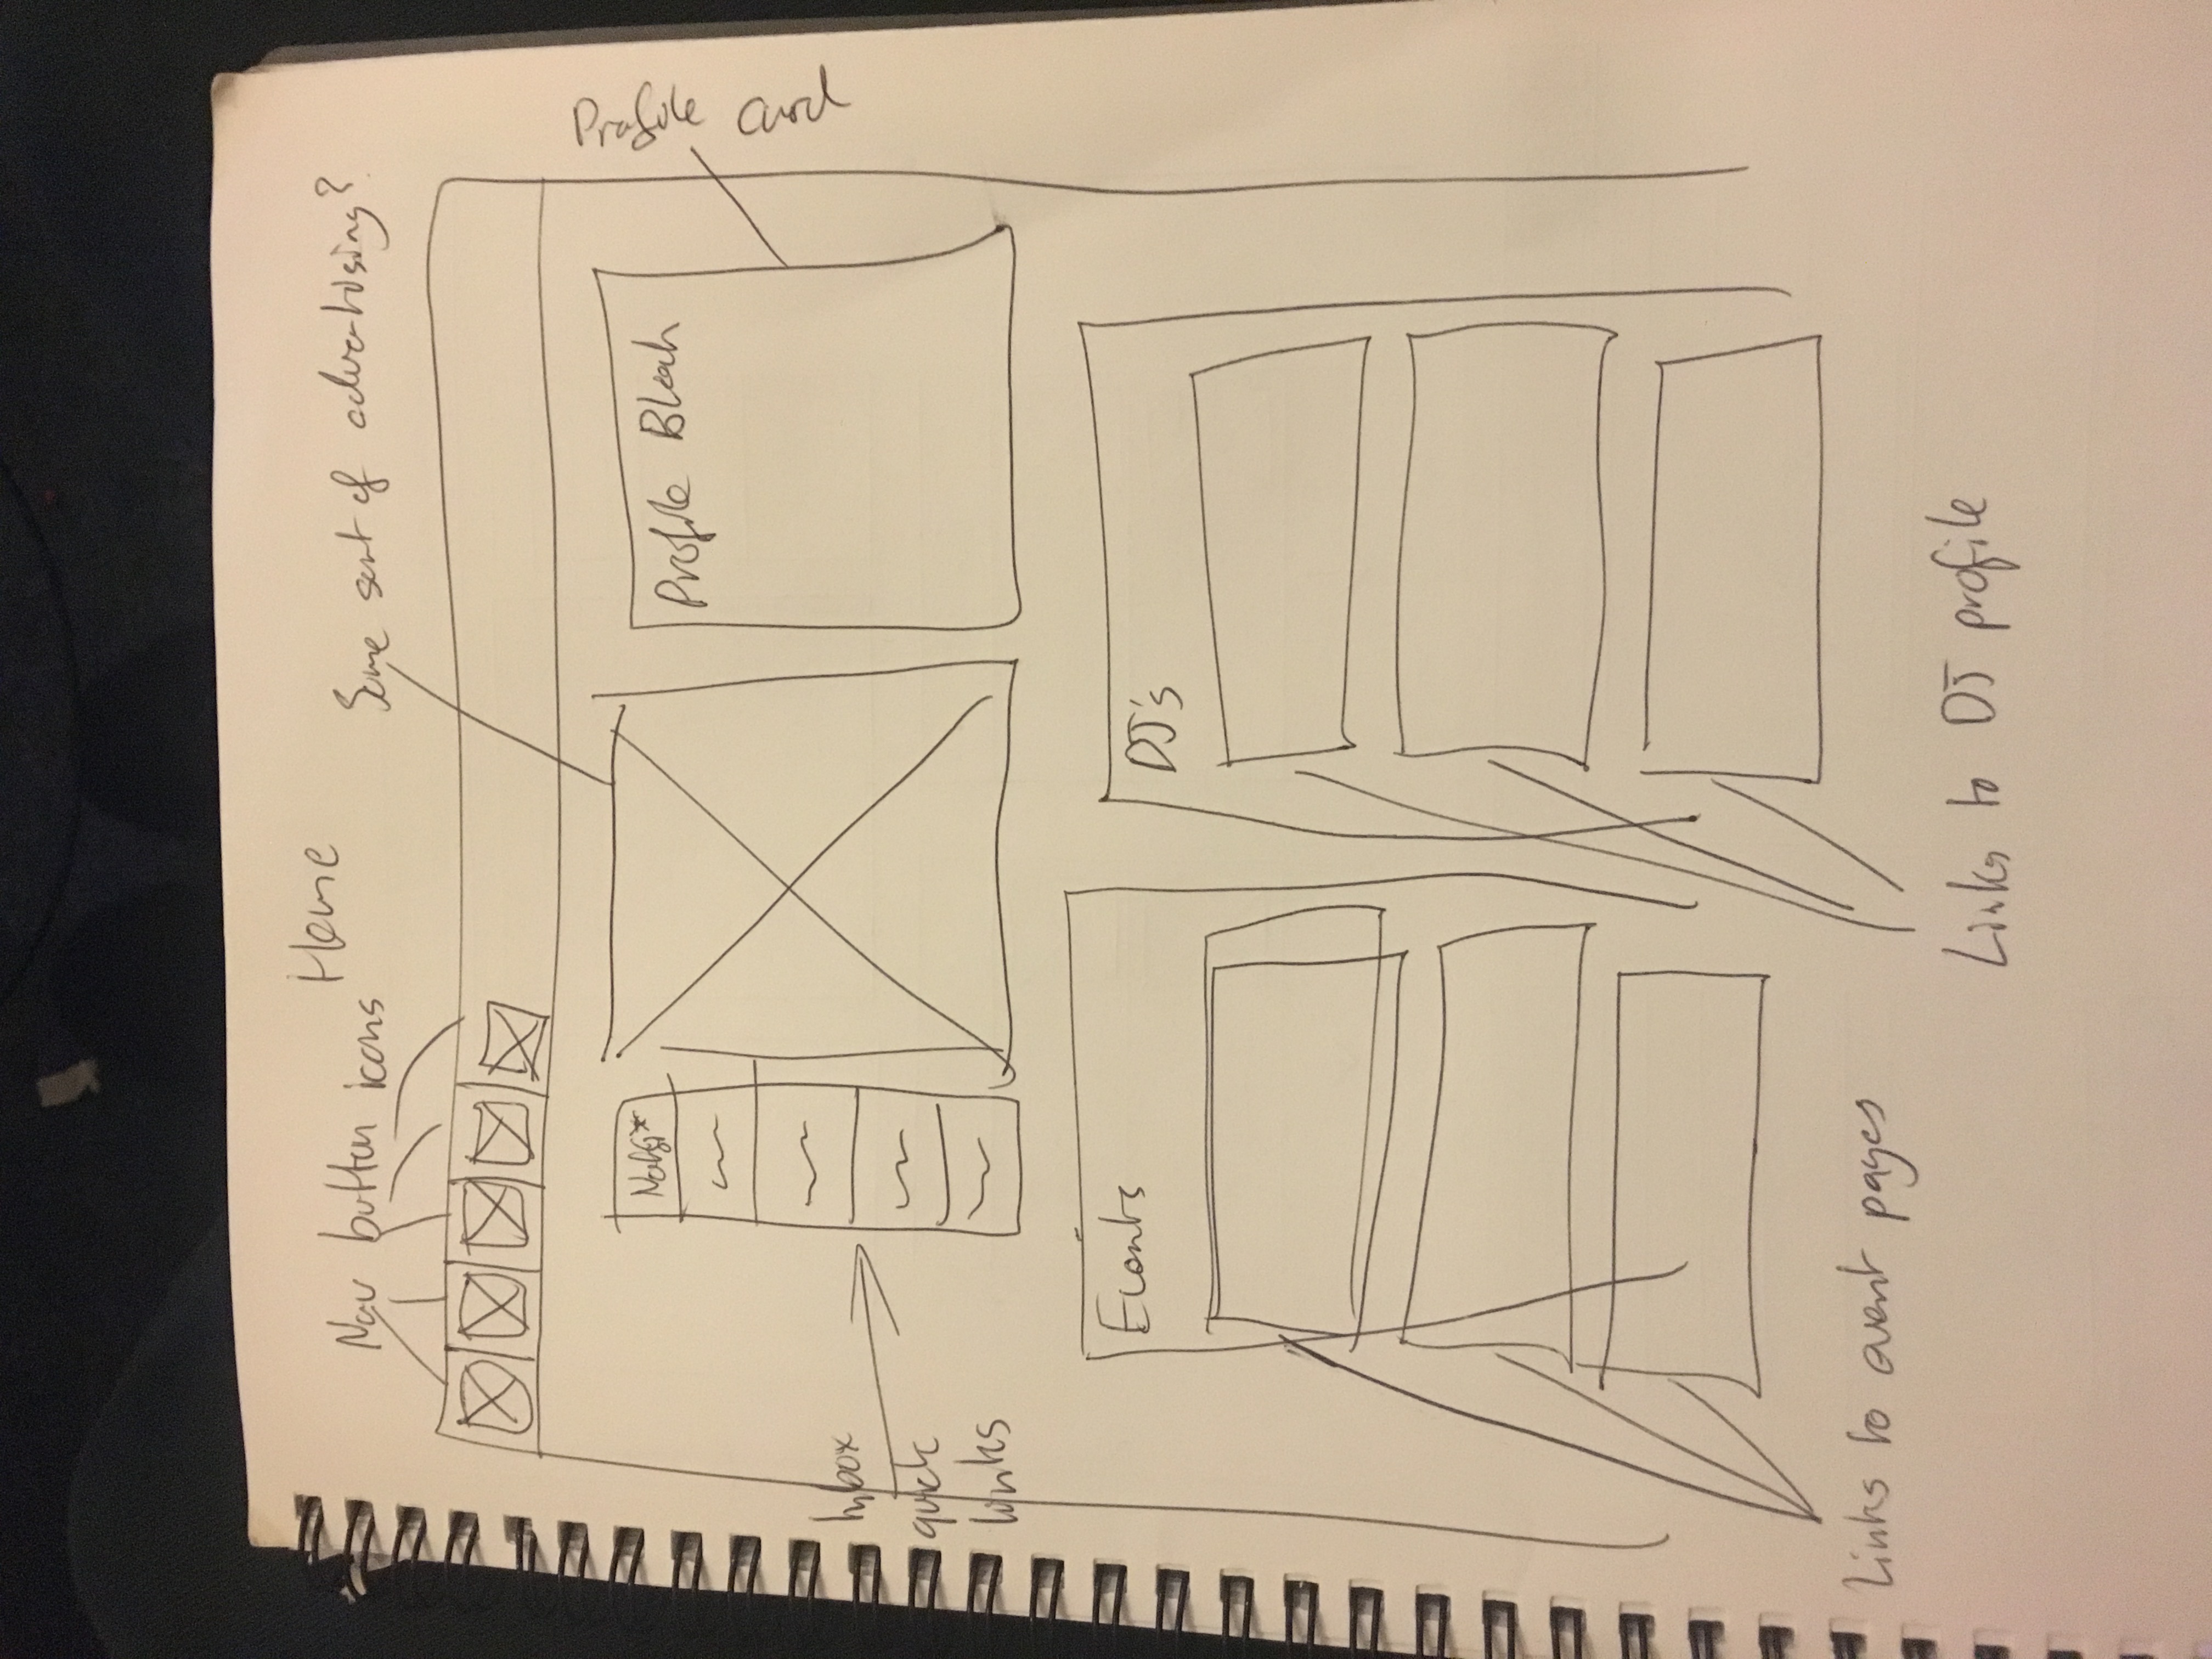 Home
Nav button icons
Some sort of advertising?
Notfi*
Profile Block
Profile card
Inbox
quick
links
Events
DJ's
Links to event pages
Links to DJ profile